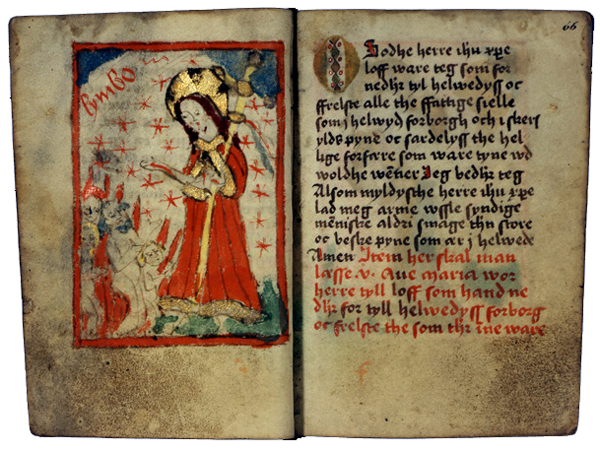 lymbo
66
O Godhe herre ihu xpe
loff ware teg som for
nedhr tyl helwedyss oc
ffrelste alle the ffattige sielle
som j helwyd forborgh och i skerj
ylds pyne oc sardelyss the hel
lige forfære som ware tyne wd
woldhe wēner Jeg bedhr teg
Alsom myldysthe herre ihu xpe
lad meg arme wssle syndige
mēniske aldri smage thn store
oc beske pyne som ær j helwede
Amen Item her skal man
læsse .v. Aue maria wor
herre tyll loff som hand ne
dhr for tyll helwedyss forborg
oc frelste the som thr īne ware